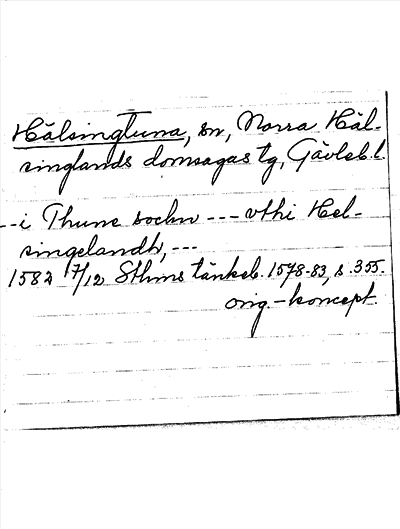 Hälsingtuna, sn, Norra Häl-
singlands domsagas tg, Gävleb. l.
--i Thune sockn --- vthi Hel-
singelandh, ---
1582 17/12 Sthms tänkeb. 1578-83, s. 355.
orig.-koncept.